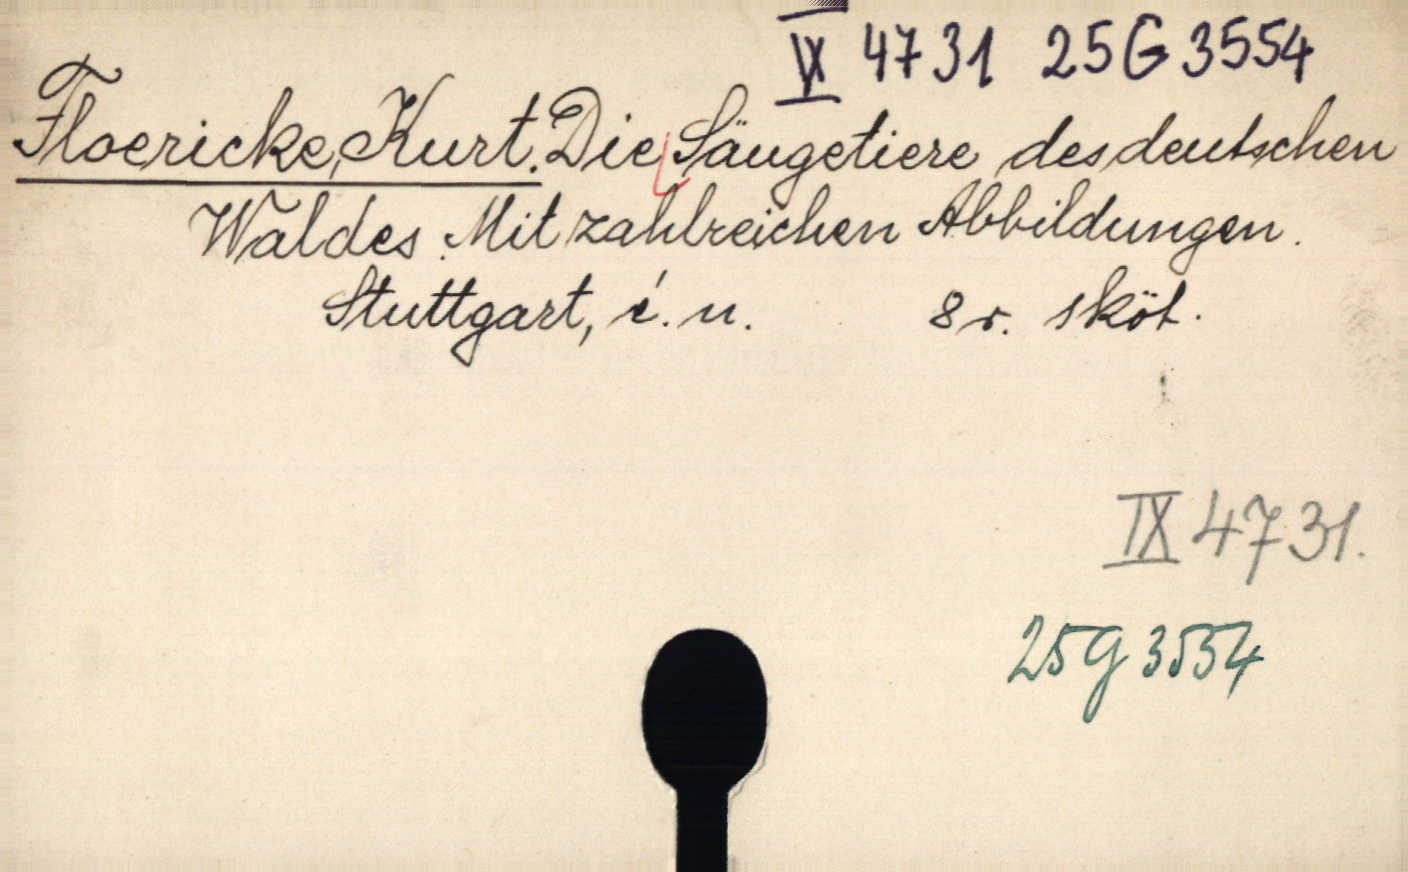 IX 4731 25G 3554
Floericke, Kurt. Die Säugetiere des deutschen
Waldes. Mit zahlreichen Abbildungen.
Stuttgart, é. n. 8 r. sköt.
IX 4731.
25G 3554